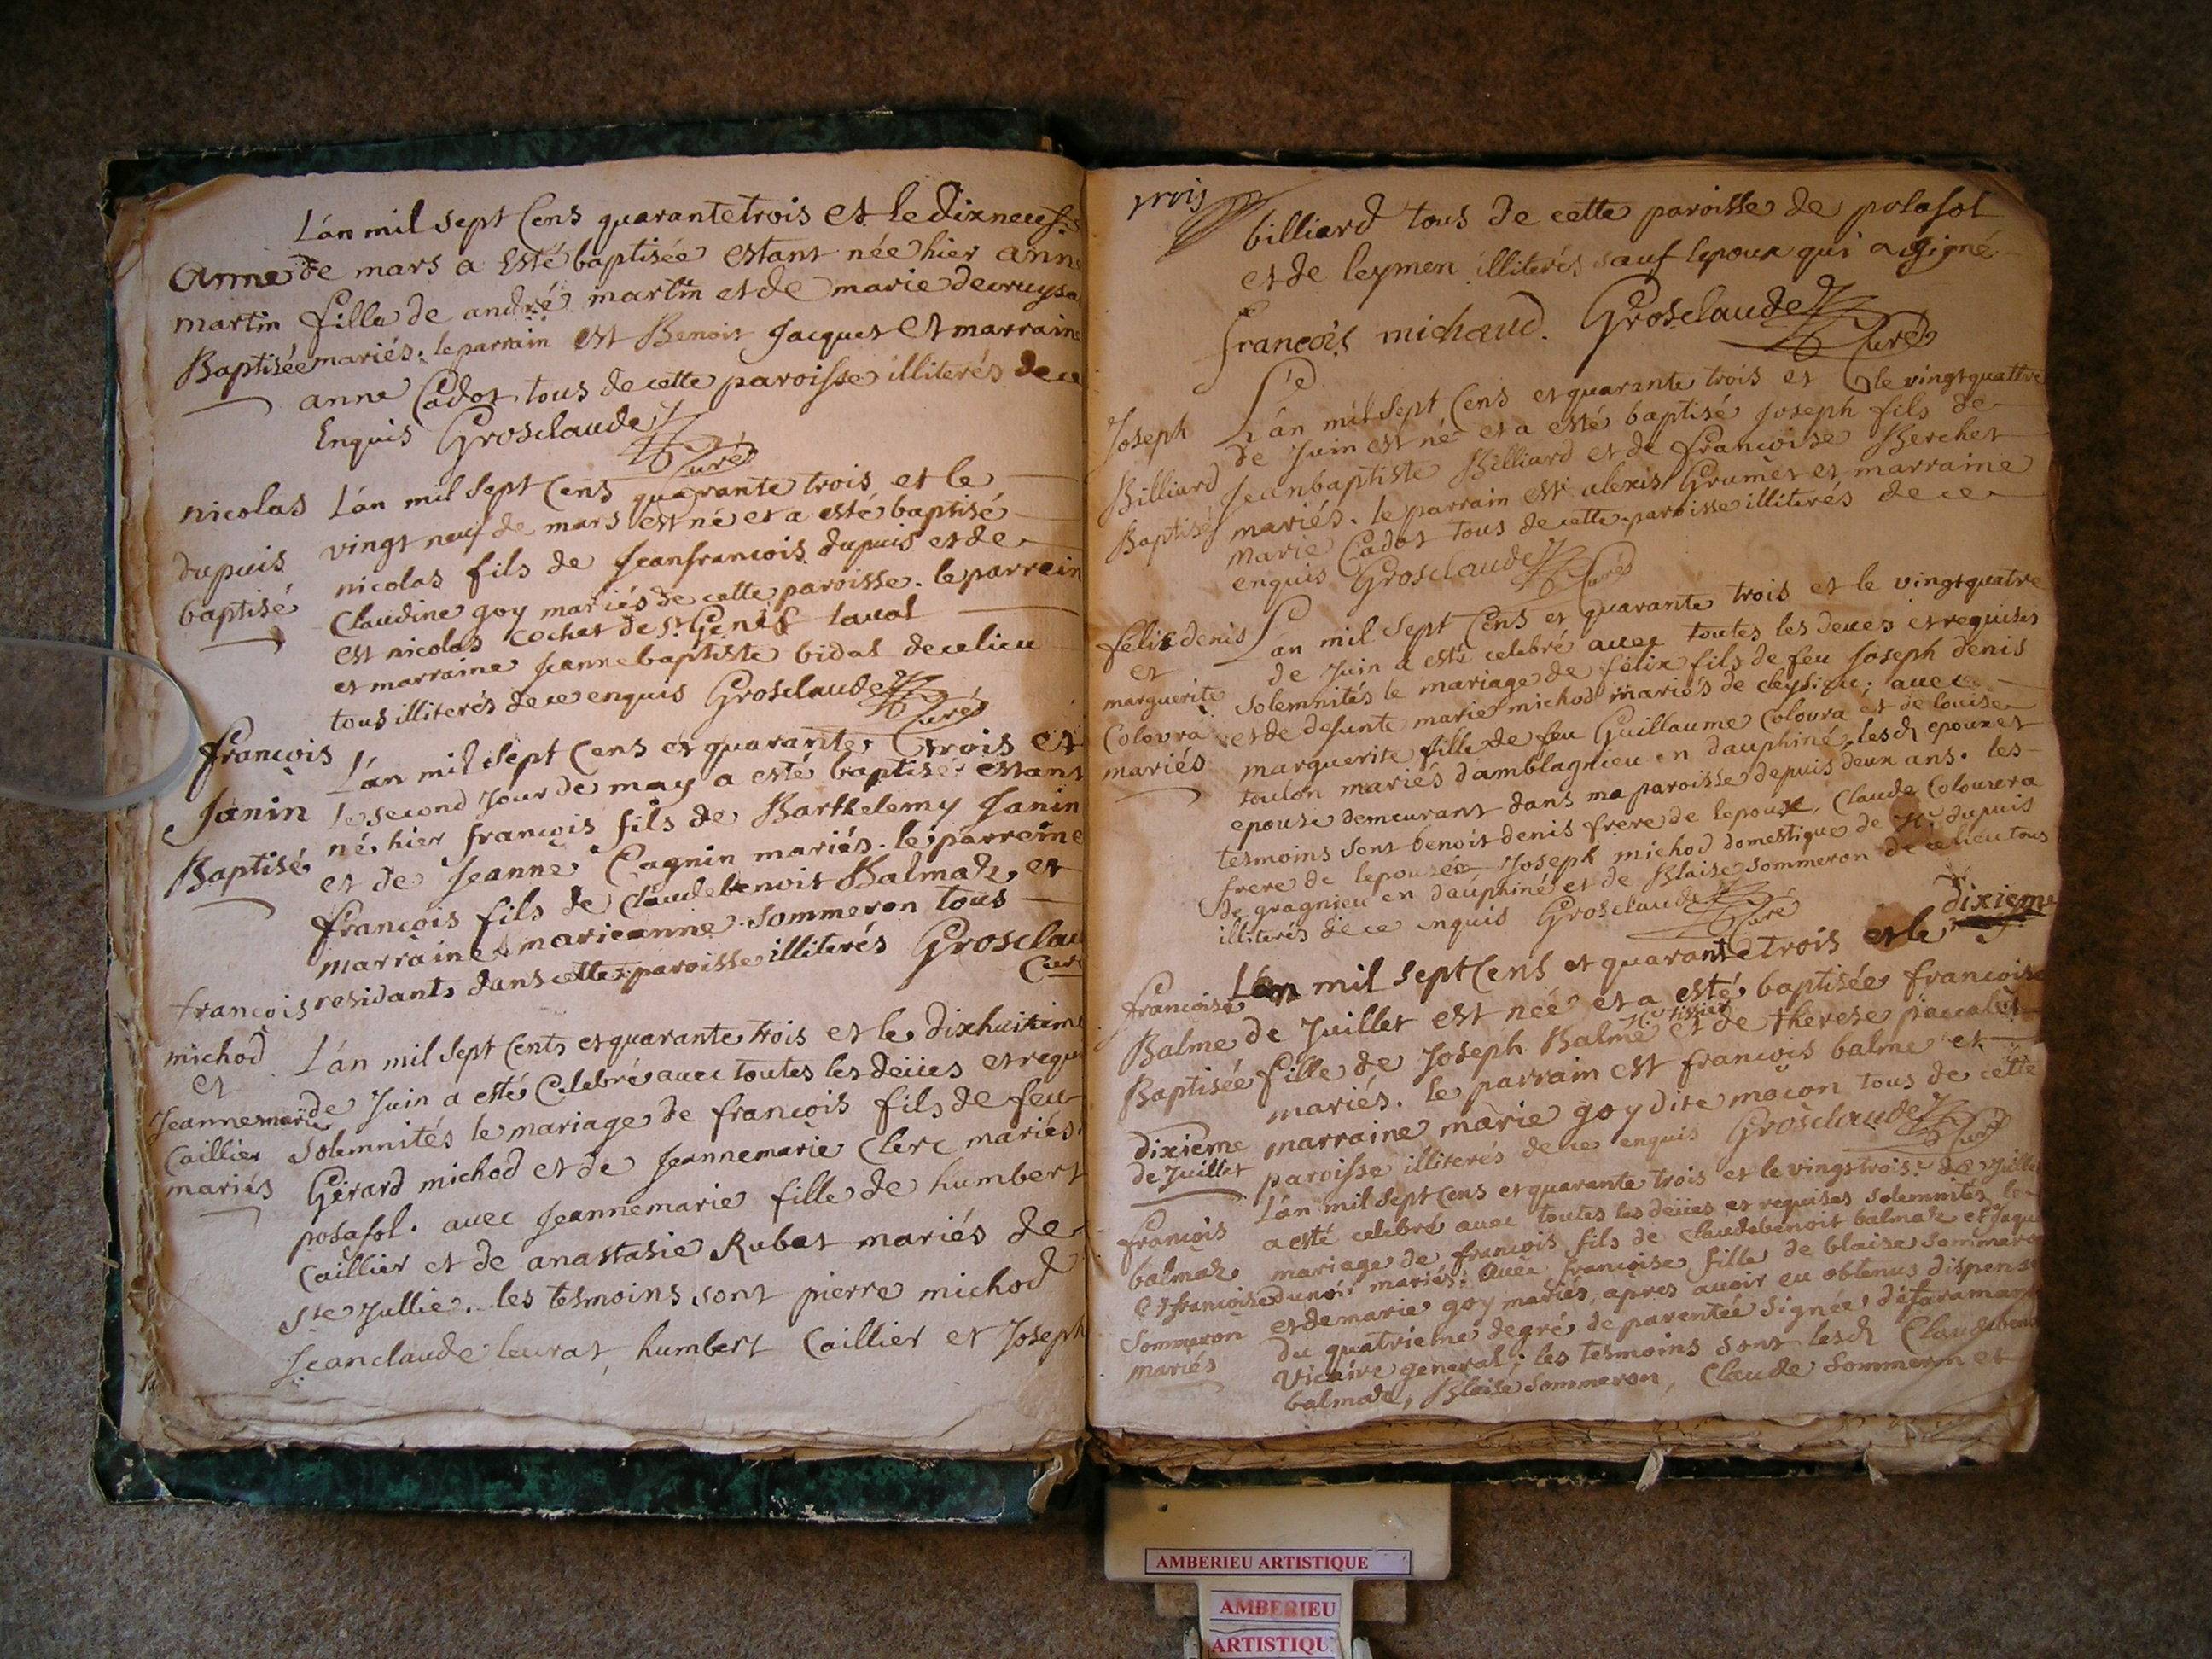 L'an mil sept Cens quarante trois et le dixneuf
Anne de mars a Esté baptisée estant née hier anne
martin fille de andré martin et de marie
Baptisée mariés. le parrain est Benoit Jacquet et marraine
anne Cadot tous de cette paroisse illiterés de ce
Enquis Grosclaude
Curé
nicolas L'an mil sept Cens quarante trois et le
vingt neuf de mars est né et a esté baptisé
dupuis nicolas fils de Jeanfrancois dupuis et de
baptisé Claudine goy mariés de cette paroisse. le parrein
est nicolas cochet de St. Genis laval
et marraine Jeannebaptiste bidal de ce lieu
tous illiterés de ce enquis Grosclaude
Curé
françois L'an mil sept Cens et quarante trois et
Janin le second Jour de may a esté baptisé estant
né hier françois fils de Barthelemy Janin
Baptisé et de Jeanne Cagnin mariés. le parreine
françois fils de Claudebenoit Balmaz, et
marraine marieanne Sommeron tous
residants dans cette paroisse illiterés Grosclau
Curé
françois
michod L'an mil sept Cents et quarante trois et le dixhuitieme
et de Juin a esté Celebré avec toutes les deües et requi
Jeannemarie Solemnités le mariage de françois fils de feu
Caillier Gérard michod et de Jeannemarie Clerc mariés
mariés posafol. avec Jeannemarie fille de humbert
Caillier et de anastasie Rubat mariés de
Ste Jullie. les tesmoins sont pierre michod
Jeanclaude leurat, humbert Caillier et Joseph
trois
billiard tous de cette paroisse de posafol
et de leymen illiterés sauf lepoux qui a signé
françois michaud. Grosclaude
Curé
Joseph L'an mil sept Cens et quarante trois et le vingtquattre
de Juin est né et a esté baptisé Joseph fils de
Billiard Jeanbaptiste Billiard et de françoise Berchet
Baptisé mariés. le parrain est alexis Grumet et marraine
Marie Cadot tous de cette paroisse illiterés de ce
enquis Grosclaude Curé
félix denis L'an mil sept Cens et quarante trois et le vingtquatre
et de Juin a esté celebré avec toutes les deues et requises
marguerite Solemnités le mariage de félix fils de feu Joseph denis
Colovra et de defunte marie michod mariés de leysieu; avec
mariés marguerite fille de feu Guillaume Colovra et de louise
toulon mariés d'amblagnieu en dauphiné, lesd epoux et
epouse demeurant dans ma paroisse depuis deux ans. les
tesmoins sont benoit denis frere de lepoux, Claude Colouvra
frere de lepouse Joseph michod domestique de Mr. dupuis
de gragnieu en dauphiné et de Blaise Sommeron de ce lieu tous
illiterés de ce enquis Grosclaude Curé
dixieme
françoise L'an mil sept Cens et quarante trois et le
Balme de Juillet est née et a esté baptisée françoise
Baptisée fille de Joseph Balme et de therese
mariés. le parrain est françois balme et
marraine marie goy dite maçon tous de cette
dixieme paroisse illiterés de ce enquis Grosclaude
de Juillet Curé
L'an mil sept Cens et quarante trois et le vingtrois de Juille
françois a esté celebré avec toutes les deües et requises solemnités le
balmaz mariage de françois fils de Claudebenoit balmaz et Jaqu
et françoise dunoir mariés: avec françoise fille de blaise Sommero
Sommeron et de marie goy mariés, apres avoir eu obtenus dispens
mariés du quatrieme degré de parentée signée
Vicaire general; les tesmoins sont lesd Claudeben
balmaz, Blaise Sommeron, Claude Sommeron et
AMBERIEU ARTISTIQUE
AMBERIEU
ARTISTIQU